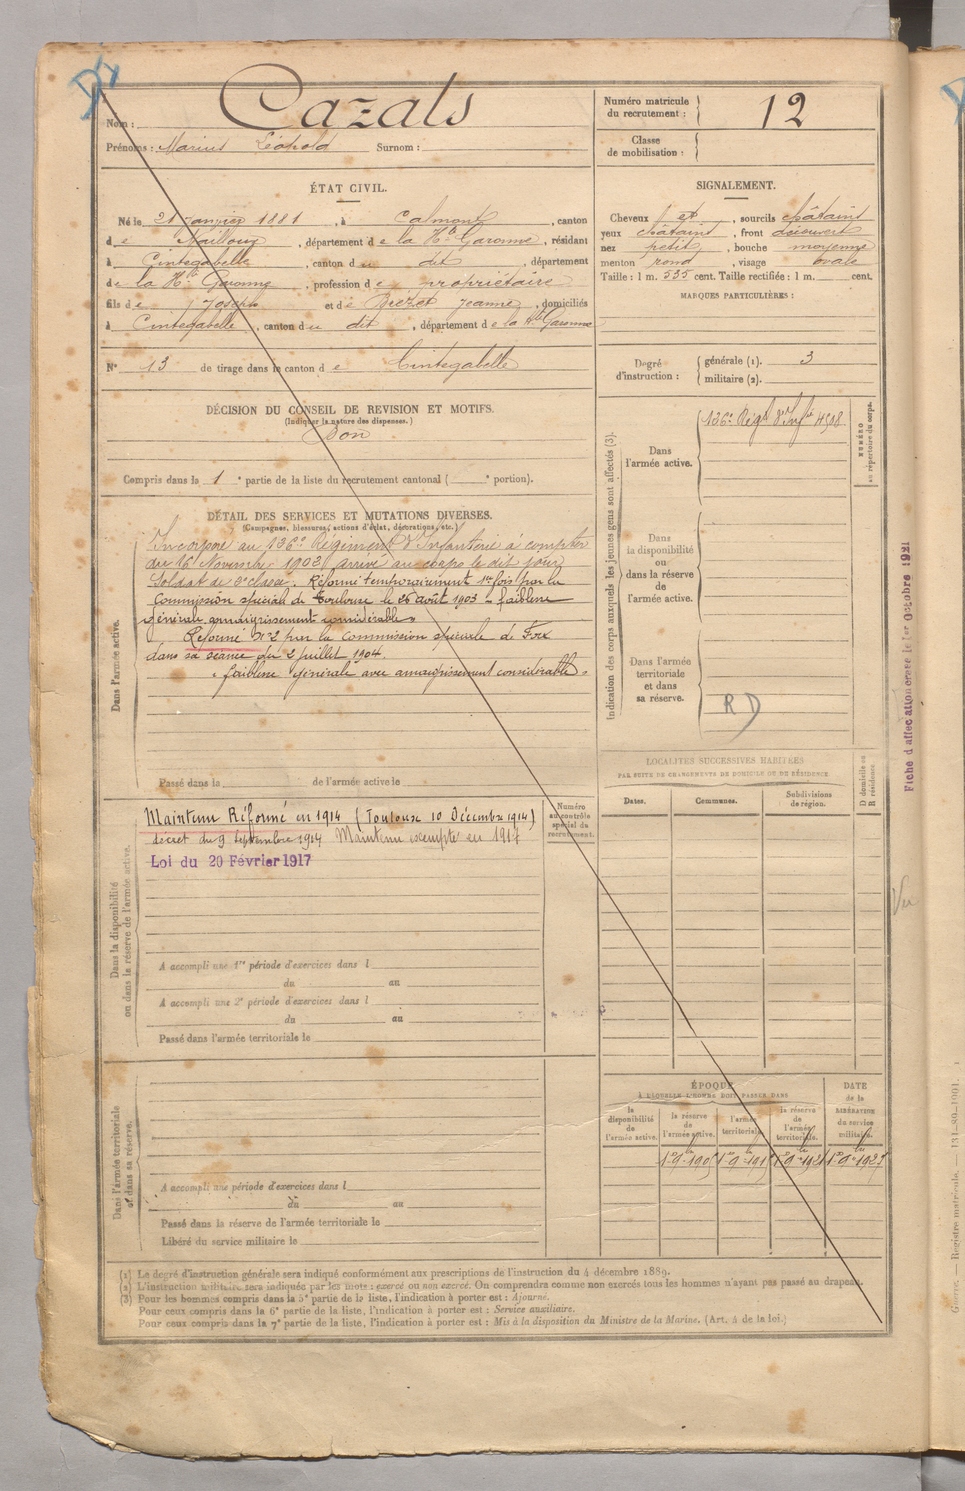 Nom : Cazals
Prénoms : Marius Léopold Surnom :
Numéro matricule du recrutement : 12
Classe de mobilisation :
ÉTAT CIVIL.
Né le 21 janvier 1881, à Calmont, canton
de Nailloux, département de la Hte Garonne, résidant
à Cintegabelle, canton du dit, département
de la Hte Garonne, profession de propriétaire
fils de Joseph et de Jeanne, domiciliés
à Cintegabelle, canton du dit, département de la Hte Garonne
N° 13 de tirage dans le canton de Cintegabelle
SIGNALEMENT.
Cheveux et, sourcils châtains
yeux châtains, front découvert
nez petit, bouche moyenne
menton rond, visage ovale
Taille : 1 m. 535 cent. Taille rectifiée : 1 m. cent.
MARQUES PARTICULIÈRES :
Degré d'instruction : générale (1). 3
militaire (2).
DÉCISION DU CONSEIL DE REVISION ET MOTIFS.
(Indiquer la nature des dispenses.)
Bon
Compris dans la 1e partie de la liste du recrutement cantonal ( e portion).
DÉTAIL DES SERVICES ET MUTATIONS DIVERSES.
(Campagnes, blessures, actions d'éclat, décorations, etc.)
Dans l'armée active.
Incorporé au 136e Régiment d'Infanterie à compter
du 16 Novembre 1902 arrivé au corps le dit jour
Soldat de 2e classe. Réformé temporairement 1re fois par la
Commission spéciale de Toulouse le 26 août 1903 - faiblesse
générale amaigrissement considérable »
Réformé N°2 par la Commission spéciale de Foix
dans sa séance du 2 juillet 1904.
« faiblesse générale avec amaigrissement considérable »
Passé dans la de l'armée active le
Indication des corps auxquels les jeunes gens sont affectés (3).
Dans l'armée active.
136e Régt d'Infie
NUMÉRO au répertoire du corps.
Dans la disponibilité ou dans la réserve de l'armée active.
Dans l'armée territoriale et dans sa réserve.
R D
LOCALITÉS SUCCESSIVES HABITÉES
PAR SUITE DE CHANGEMENTS DE DOMICILE OU DE RÉSIDENCE
Dates. Communes. Subdivisions de région.
D domicile ou R résidence
Dans la disponibilité ou dans la réserve de l'armée active.
Numéro au contrôle spécial du recrutement.
Maintenu Réformé en 1914 (Toulouse 10 Décembre 1914)
décret du 9 Septembre 1914 Maintenu exempté en 1917
Loi du 20 Février 1917
A accompli une 1re période d'exercices dans l
du au
A accompli une 2e période d'exercices dans l
du au
Passé dans l'armée territoriale le
Dans l'armée territoriale et dans sa réserve.
A accompli une période d'exercices dans l
du au
Passé dans la réserve de l'armée territoriale le
Libéré du service militaire le
ÉPOQUE
À LAQUELLE L'HOMME DOIT PASSER DANS
la disponibilité de l'armée active.
la réserve de l'armée active.
l'armée territoriale.
la réserve de l'armée territoriale.
DATE de la LIBÉRATION du service militaire.
(1) Le degré d'instruction générale sera indiqué conformément aux prescriptions de l'instruction du 4 décembre 1889.
(2) L'instruction militaire sera indiquée par les mots : exercé ou non exercé. On comprendra comme non exercés tous les hommes n'ayant pas passé au drapeau.
(3) Pour les hommes compris dans la 5e partie de la liste, l'indication à porter est : Ajourné.
Pour ceux compris dans la 6e partie de la liste, l'indication à porter est : Service auxiliaire.
Pour ceux compris dans la 7e partie de la liste, l'indication à porter est : Mis à la disposition du Ministre de la Marine. (Art. 4 de la loi.)
Fiche d'affectation crase le 1er Octobre 1921
Vu